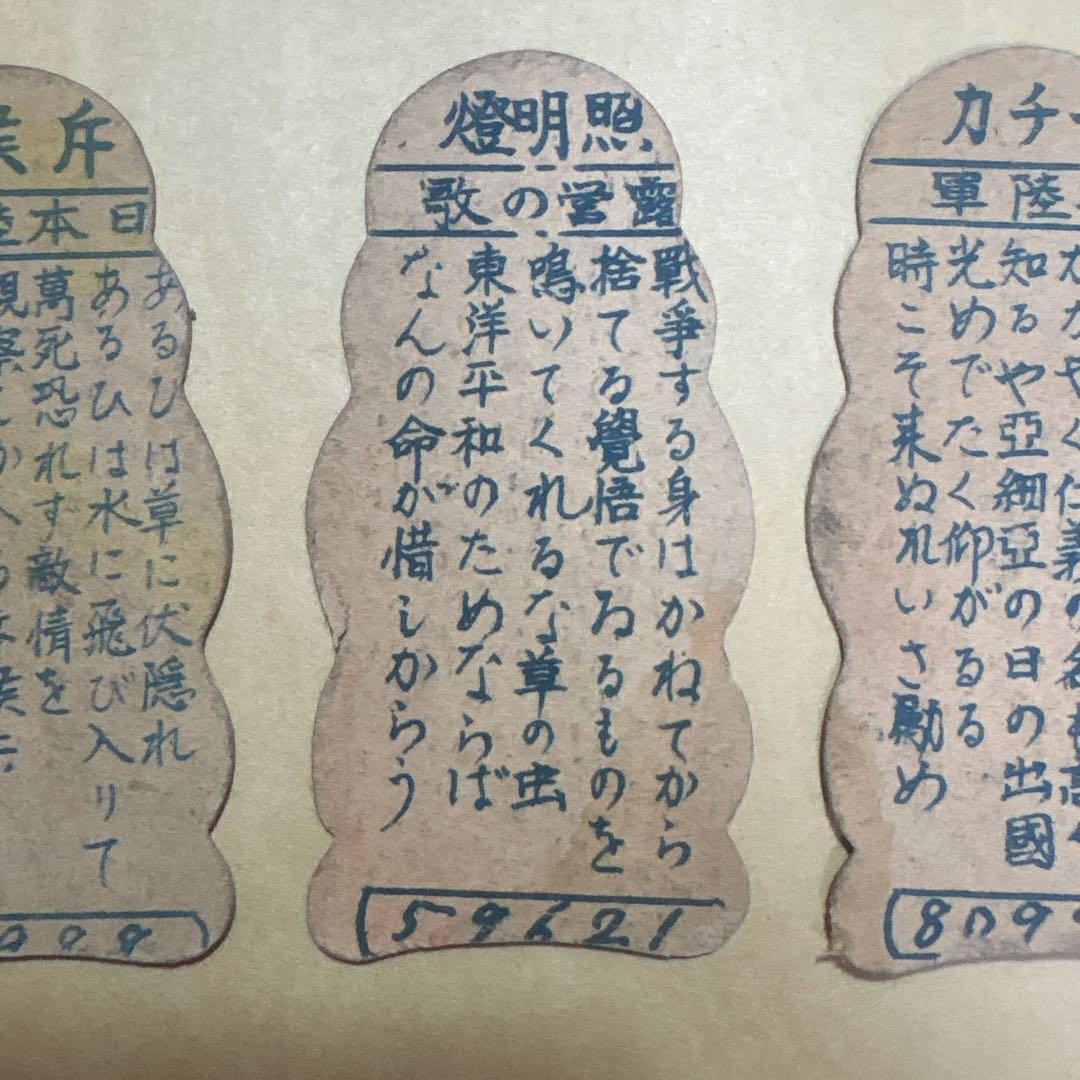 チカ
陸軍
かがやく仁義の名も高く
知るや亜細亜の日の出國
光めでたく仰がるる
時こそ来ぬれいさ勵め
809
照明燈
露営の歌
戰爭する身はかねてから
捨てる覺悟でゐるものを
鳴いてくれるな草の虫
東洋平和のためならば
なんの命が惜しからう
59621
斥候
日本陸
あるひは草に伏隠れ
あるひは水に飛び入りて
萬死恐れず敵情を